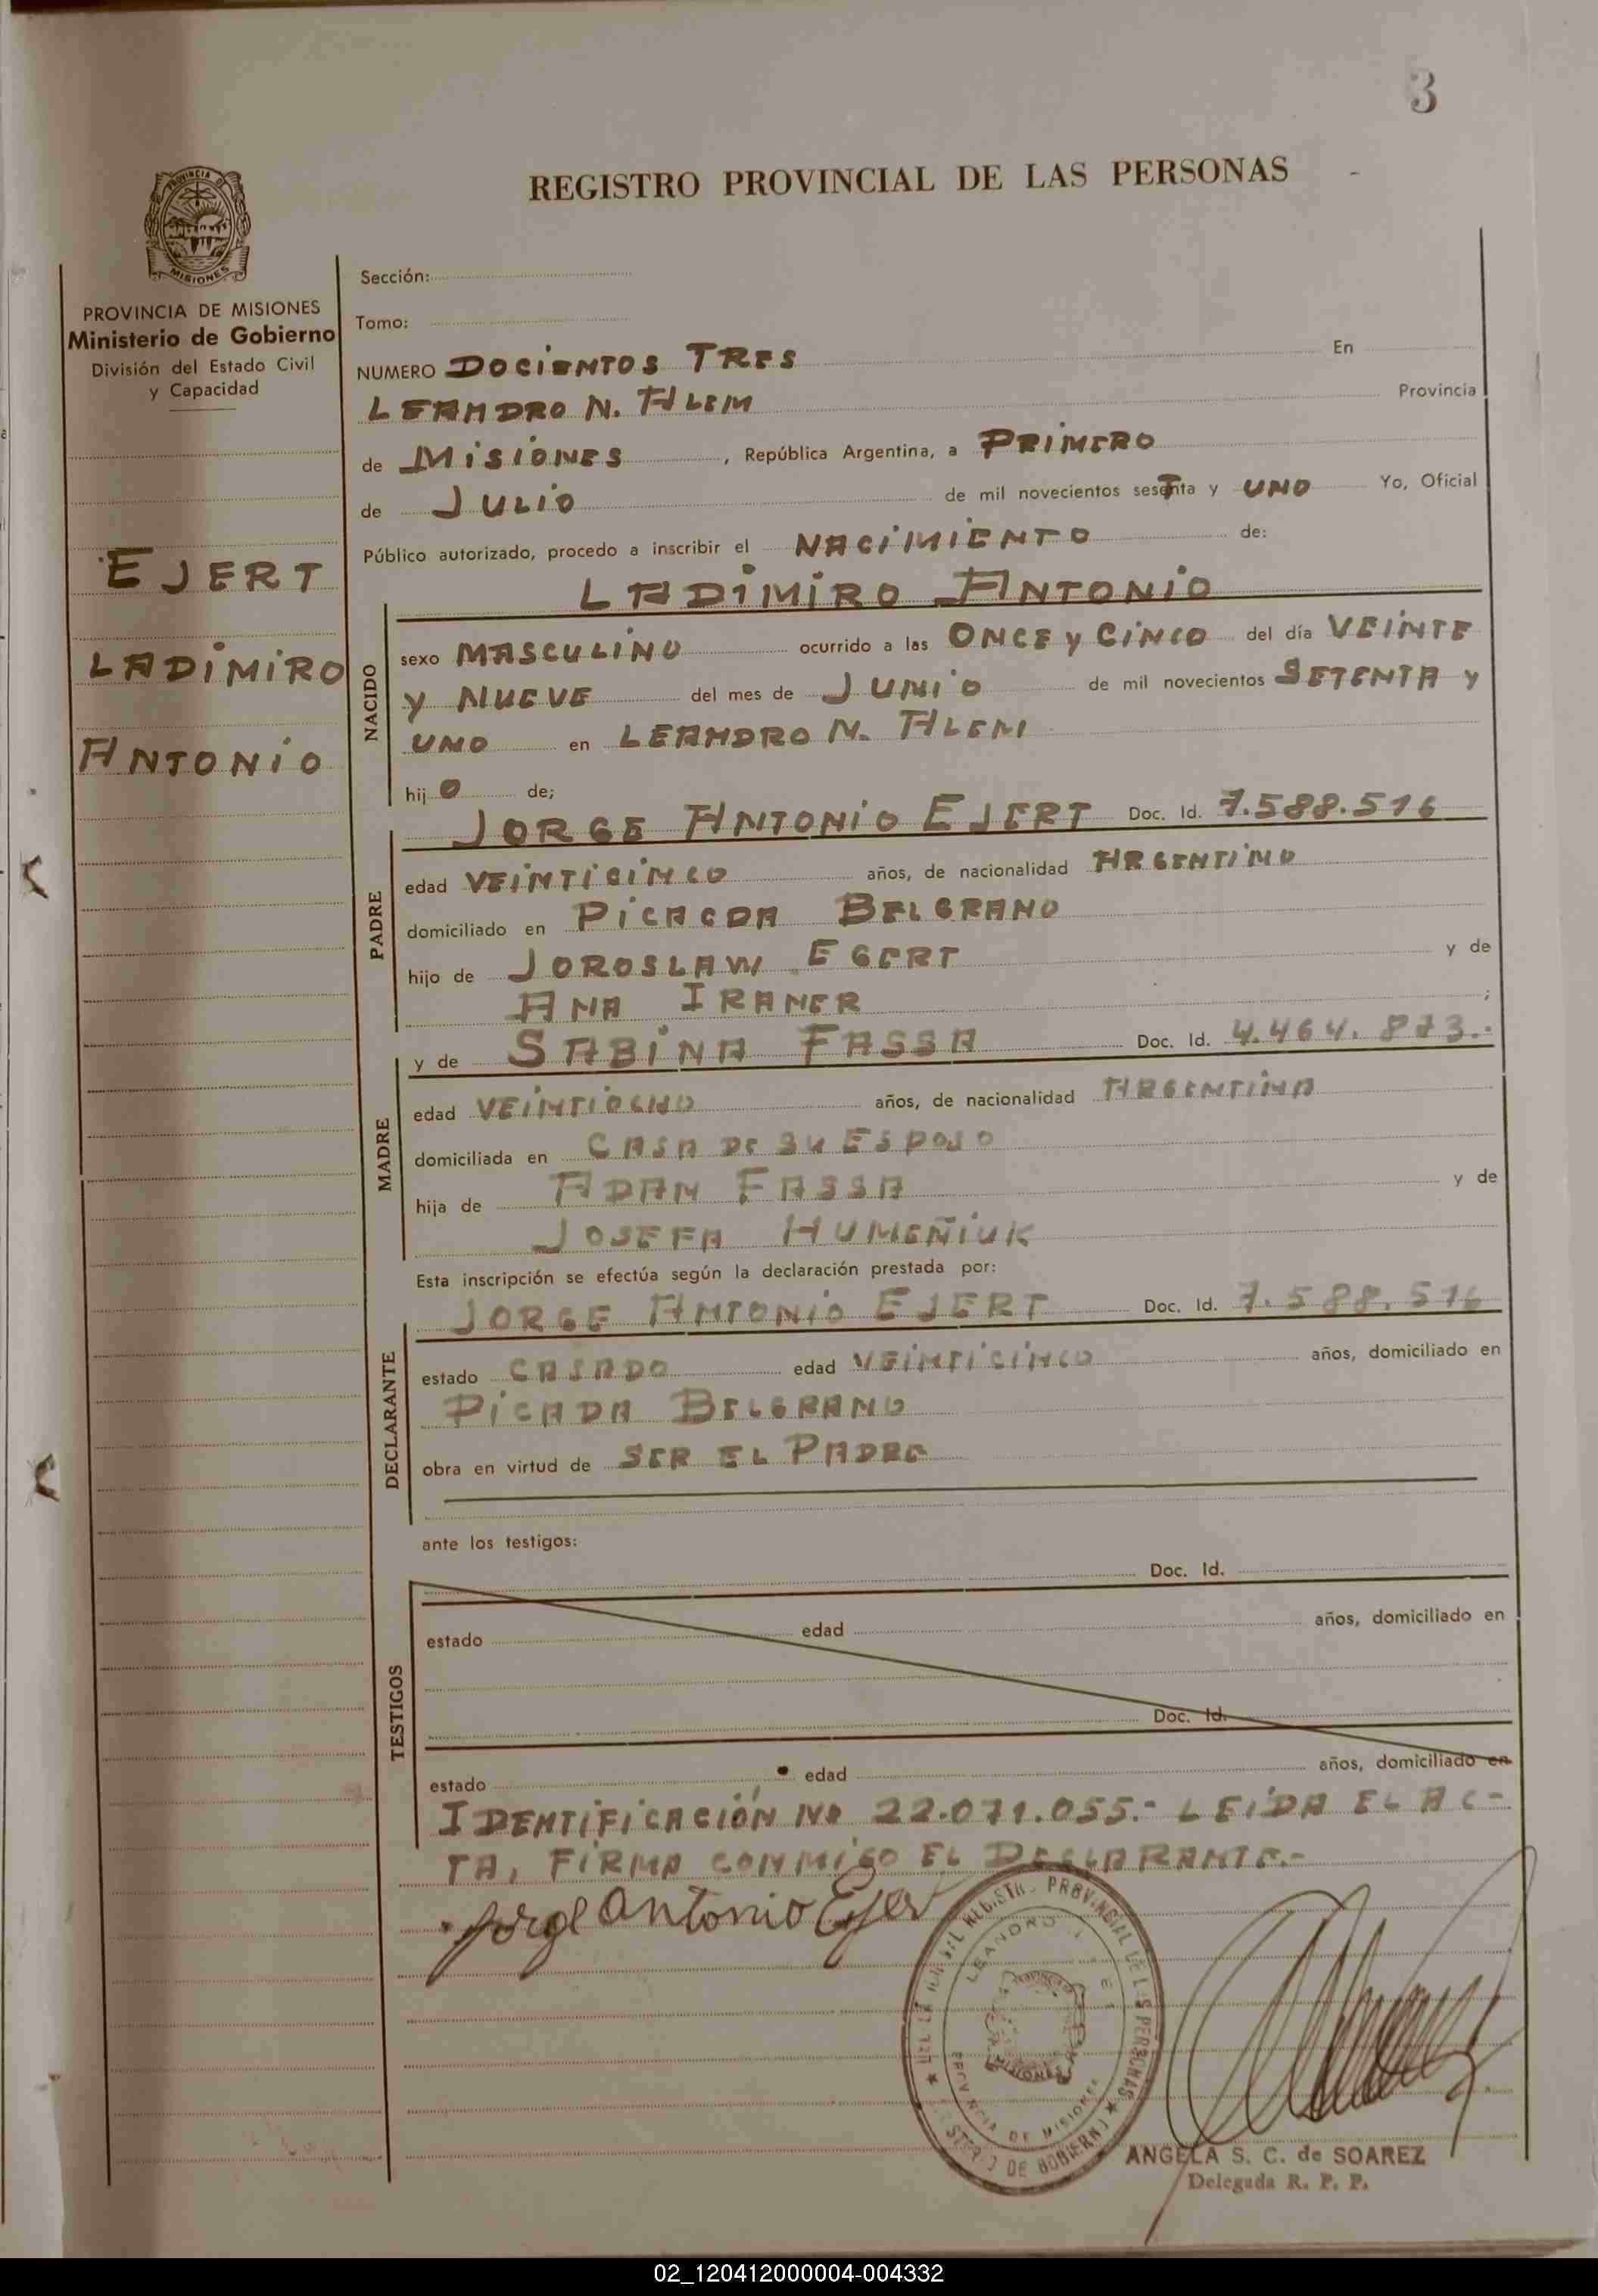 3
REGISTRO PROVINCIAL DE LAS PERSONAS
PROVINCIA DE
MISIONES
PROVINCIA DE MISIONES
Ministerio de Gobierno
División del Estado Civil
y Capacidad
EJERT
LADIMIRO
ANTONIO
Sección:
Tomo:
NUMERO DOCIENTOS TRES En
LEANDRO N. ALEM Provincia
de MISIONES, República Argentina, a PRIMERO
de JULIO de mil novecientos sesTnta y UNO Yo, Oficial
Público autorizado, procedo a inscribir el NACIMIENTO de:
LADIMIRO ANTONIO
NACIDO
sexo MASCULINO ocurrido a las ONCE y CINCO del día VEINTE
y NUEVE del mes de JUNIO de mil novecientos SETENTA y
UNO en LEANDRO N. ALEM
hijO de;
JORGE ANTONIO EJERT Doc. Id. 7.588.516
PADRE
edad VEINTICINCO años, de nacionalidad ARGENTINO
domiciliado en PICACDA BELGRANO
hijo de JOROSLAW EGERT y de
ANA IRANER ;
y de SABINA FASSA Doc. Id. 4.464.873.-
MADRE
edad VEINTIOCHO años, de nacionalidad ARGENTINA
domiciliada en CASA DE SU ESPOSO
hija de ADAM FASSA y de
JOSEFA HUMEÑIUK
Esta inscripción se efectúa según la declaración prestada por:
JORGE ANTONIO EJERT Doc. Id. 7.588.516
DECLARANTE
estado CASADO edad VEINTICINCO años, domiciliado en
PICADA BELGRANO
obra en virtud de SER EL PADRE
ante los testigos:
Doc. Id.
TESTIGOS
estado edad años, domiciliado en
Doc. Id.
estado edad años, domiciliado en
IDENTIFICACIÓN No 22.071.055.- LEIDA EL AC-
TA, FIRMA CONMIGO EL DECLARANTE.-
Jorge Antonio Ejer
PROVINCIAL DE LAS PERSONAS
LEANDRO
MISIONES
PROVINCIA DE MISIONES
DE GOBIERNO
ANGELA S. C. de SOAREZ
Delegada R. P. P.
02_120412000004-004332